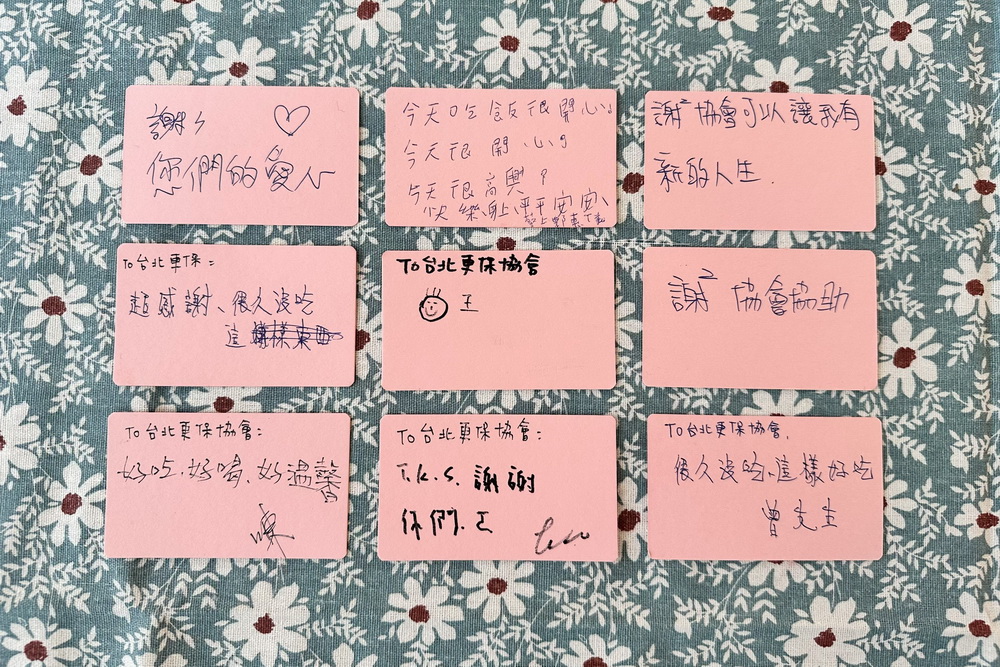 謝々 ♡
您們的愛心
今天吃飯很開心!
今天很開心!
今天很高興!
快樂上平平安安
謝²協會可以讓我有
新的人生.
To台北更保:
超感謝、很久沒吃
這樣東西
To台北更保協會
王
謝² 協會協助
To台北更保協會:
好吃、好喝、好溫馨
To台北更保協會:
T.K.S. 謝謝
你們. 王
To台北更保協會.
很久沒吃這樣好吃
曾先生